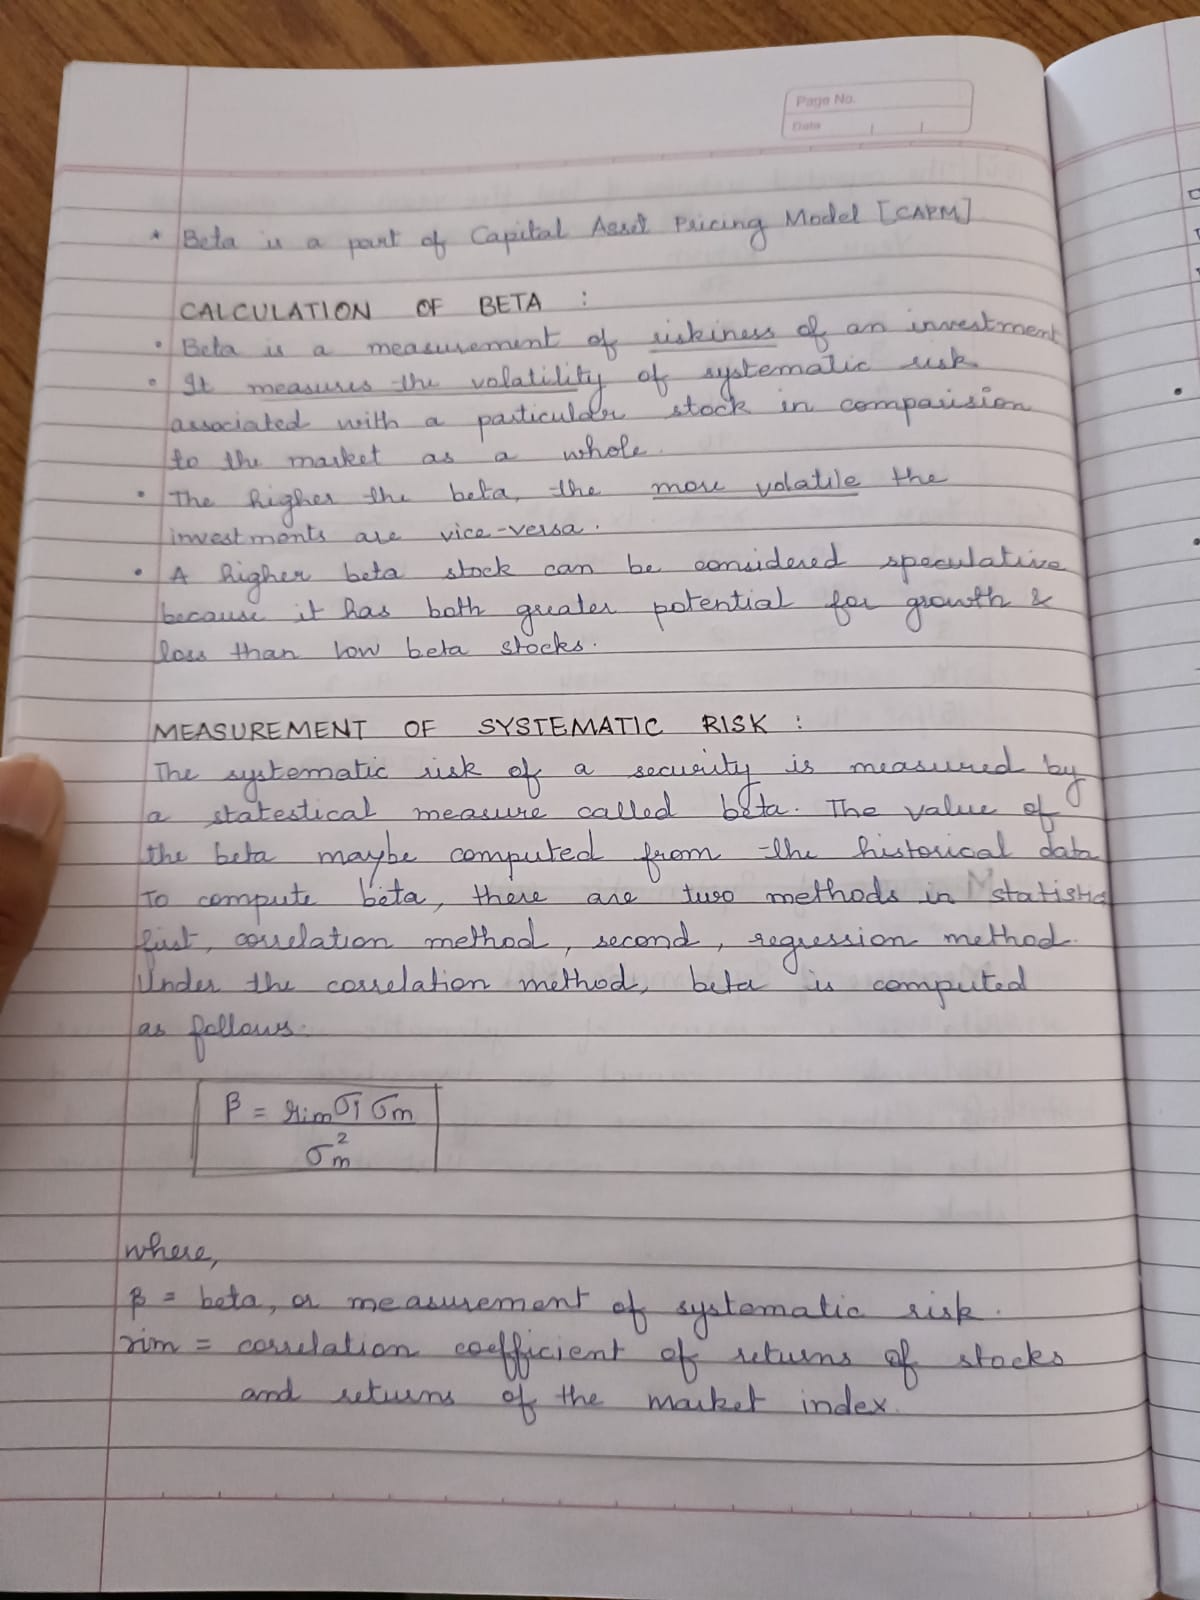 Page No.
Date
* Beta is a part of Capital Asset Pricing Model [CAPM]
CALCULATION OF BETA :
• Beta is a measurement of riskiness of an investment
• It measures the volatility of systematic risk
associated with a particular stock in comparision
to the market as a whole.
• The higher the beta, the more volatile the
investments are vice-versa.
• A higher beta stock can be considered speculative
because it has both greater potential for growth &
loss than low beta stocks.
MEASUREMENT OF SYSTEMATIC RISK :
The systematic risk of a security is measured by
a statestical measure called beta. The value of
the beta maybe computed from the historical data
To compute beta, there are two methods in statistic
first, correlation method, second, regression method.
Under the correlation method, beta is computed
as follows.
β = rim σi σm
σm²
where,
β = beta, or measurement of systematic risk.
rim = correlation coefficient of returns of stocks
and returns of the market index.